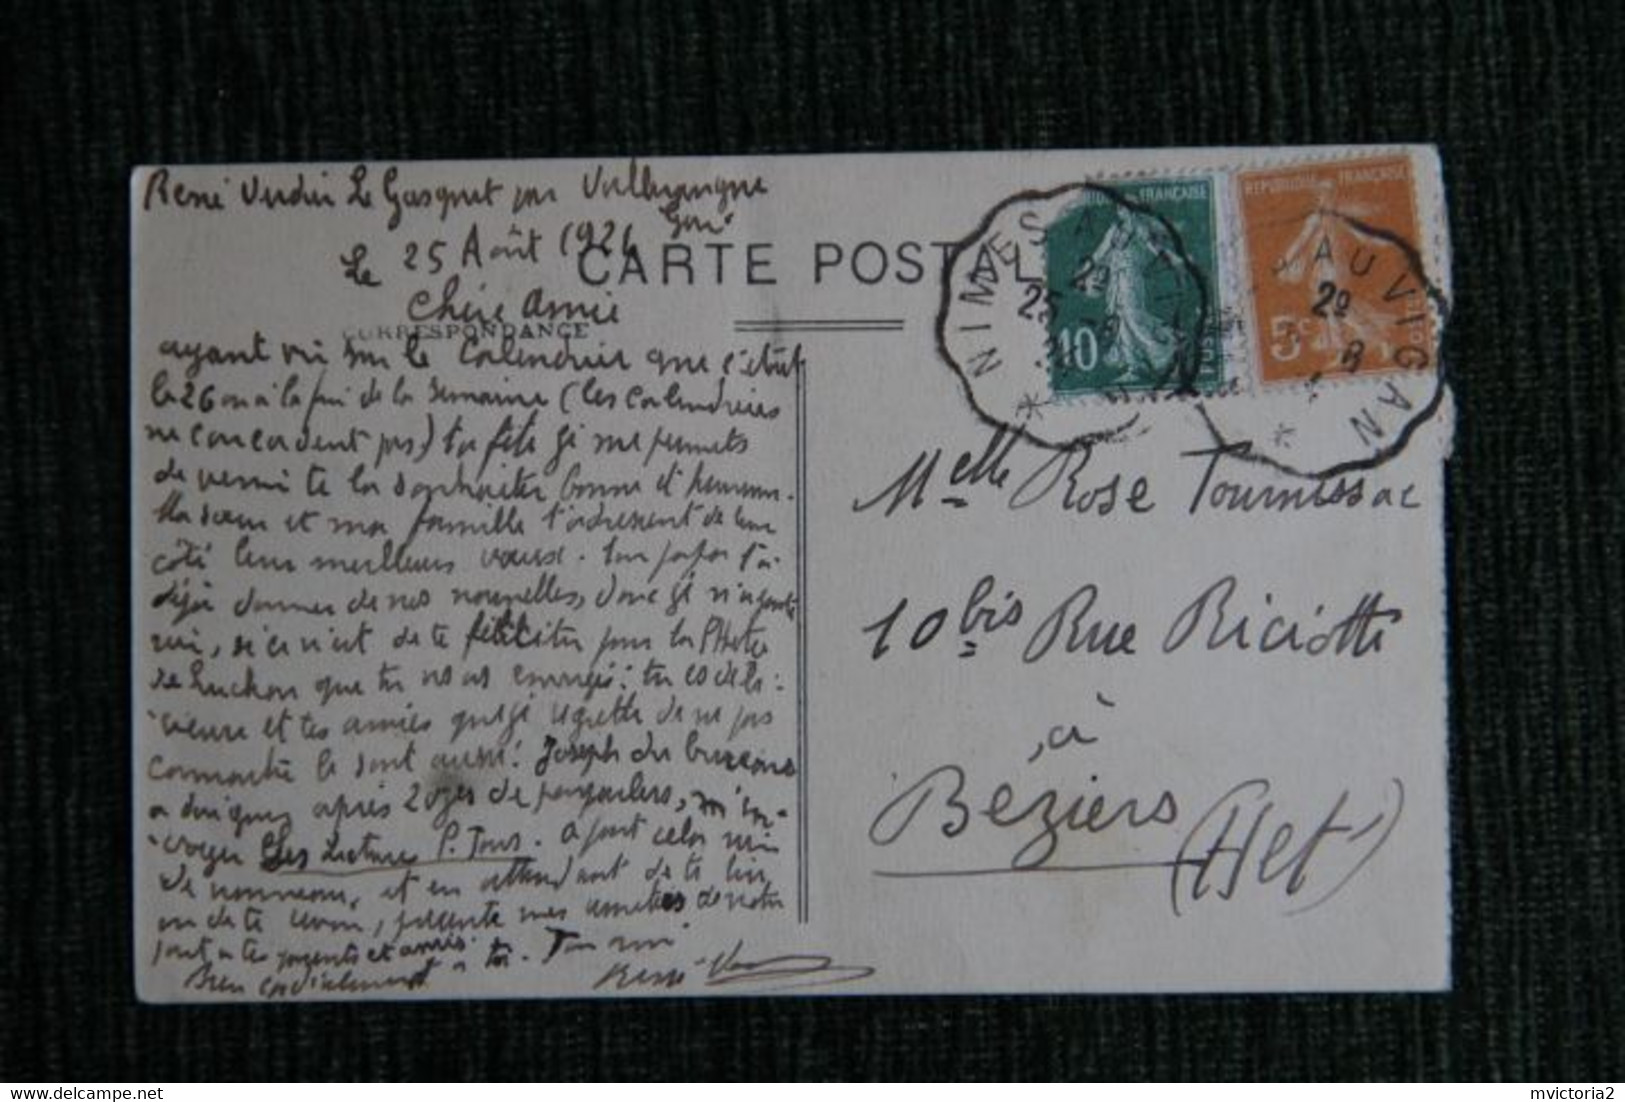 René Verdier Le Gasquet par Valleraugue
Gard
Le 25 Août 1921
CARTE POSTALE
Chère Amie
CORRESPONDANCE
ayant vu sur le Calendrier que c'était
le 26 ou à la fin de la semaine (les Calendriers
ne concordent pas) ta fête je me permets
de venir te la souhaiter bonne et heureuse.
Ma sœur et ma famille t'adressent de leur
côté leurs meilleurs vœux. Ton papa t'a
déjà donner de nos nouvelles, donc je n'ajoute
rien, si ce n'est de te féliciter pour la Photo
de Luchon que tu nous envoyée: tu es déli-
cieuse et tes amies que je regrette de ne pas
connaître le sont aussi! Joseph du
a daigné, après 2 de pourparlers, m'en-
voyer Les Lectures P. Tous. A part cela rien
de nouveau, et en attendant de te lire
ou de te voir, présente mes amitiés de notre
part a tes parents et amis
Bien cordialement a toi. Ton ami
René
NIMES AU VIGAN
25
REPUBLIQUE FRANÇAISE
10c
POSTES
REPUBLIQUE FRANÇAISE
5c
AU VIGAN
Melle Rose Tournissac
10 bis Rue Riciotti
à
Béziers
(Het)
delcampe.net
mvictoria2